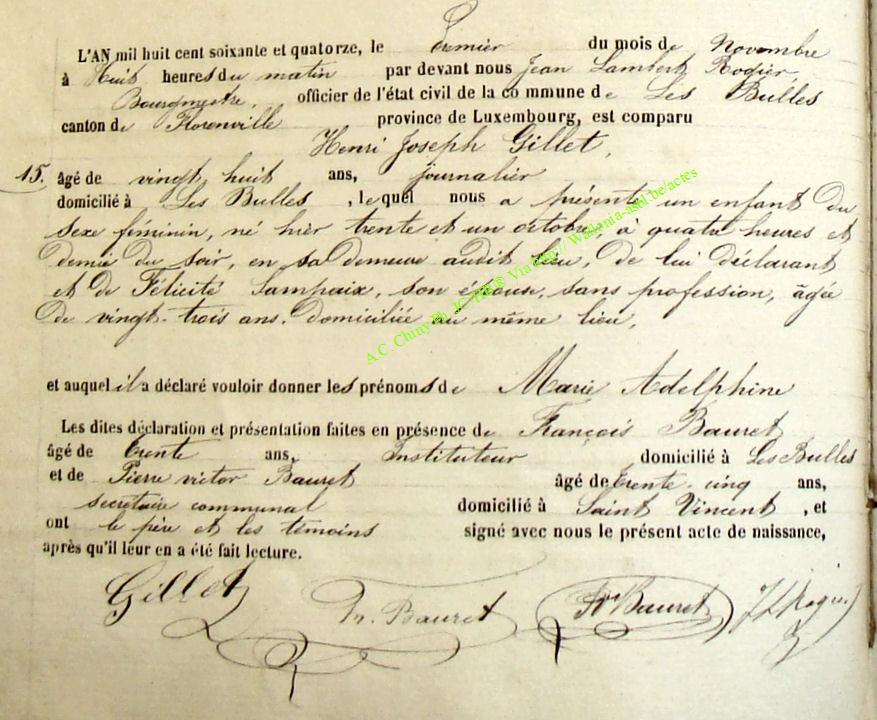 L'AN mil huit cent soixante et quatorze, le premier du mois de Novembre
à Huit heures du matin par devant nous Jean Lambert Rogier,
Bourgmestre, officier de l'état civil de la commune de Les Bulles
canton de Florenville province de Luxembourg, est comparu
Henri Joseph Gillet,
15. âgé de vingt huit ans, journalier
domicilié à Les Bulles, lequel nous a présenté un enfant du
sexe féminin, né hier trente et un octobre, à quatre heures et
demie du soir, en sa demeure audit lieu, de lui déclarant
et de Félicité Lampaix, son épouse, sans profession, âgée
de vingt-trois ans, domiciliée au même lieu,
A.C. Chiny
et auquel il a déclaré vouloir donner les prénoms de Marie Adelphine
Les dites déclaration et présentation faites en présence de François Bauret
âgé de trente ans, Instituteur domicilié à Les Bulles
et de Pierre victor Bauret âgé de trente-cinq ans,
secrétaire communal domicilié à Saint Vincent, et
ont le père et les témoins signé avec nous le présent acte de naissance,
après qu'il leur en a été fait lecture.
Gillet Fr. Bauret PV Bauret JLRogier